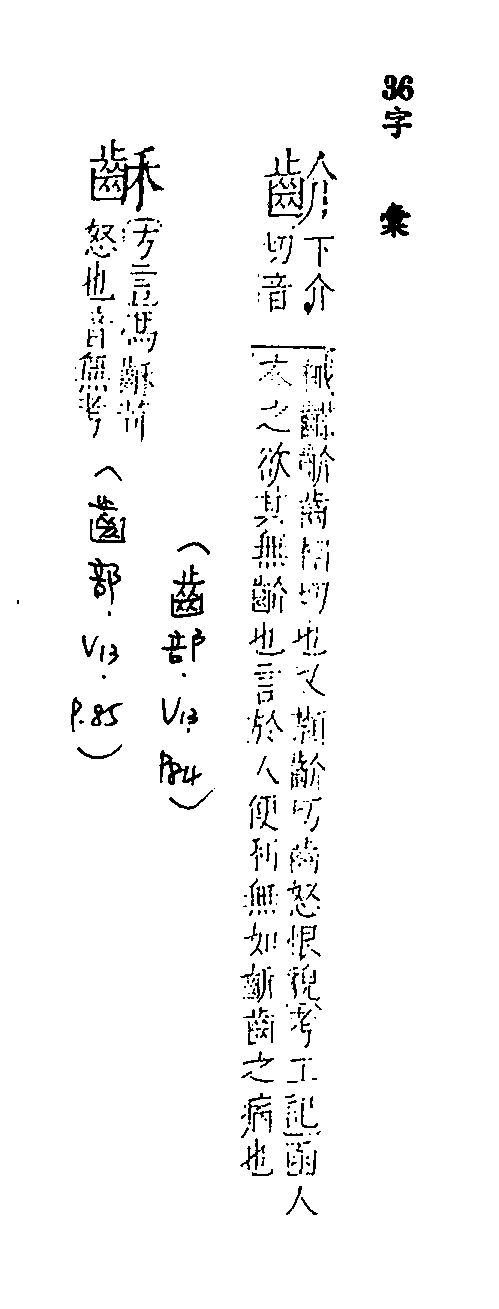 36字 彙
齘 下介切音
械齘齒相切也又類齘切齒怒恨貌考工記函人
衣之欲其無齘也言於人便利無如齘齒之病也
(齒部.V13.P.84)
齘 方言馮齘苛怒也音無考
(齒部.V13.P.85)